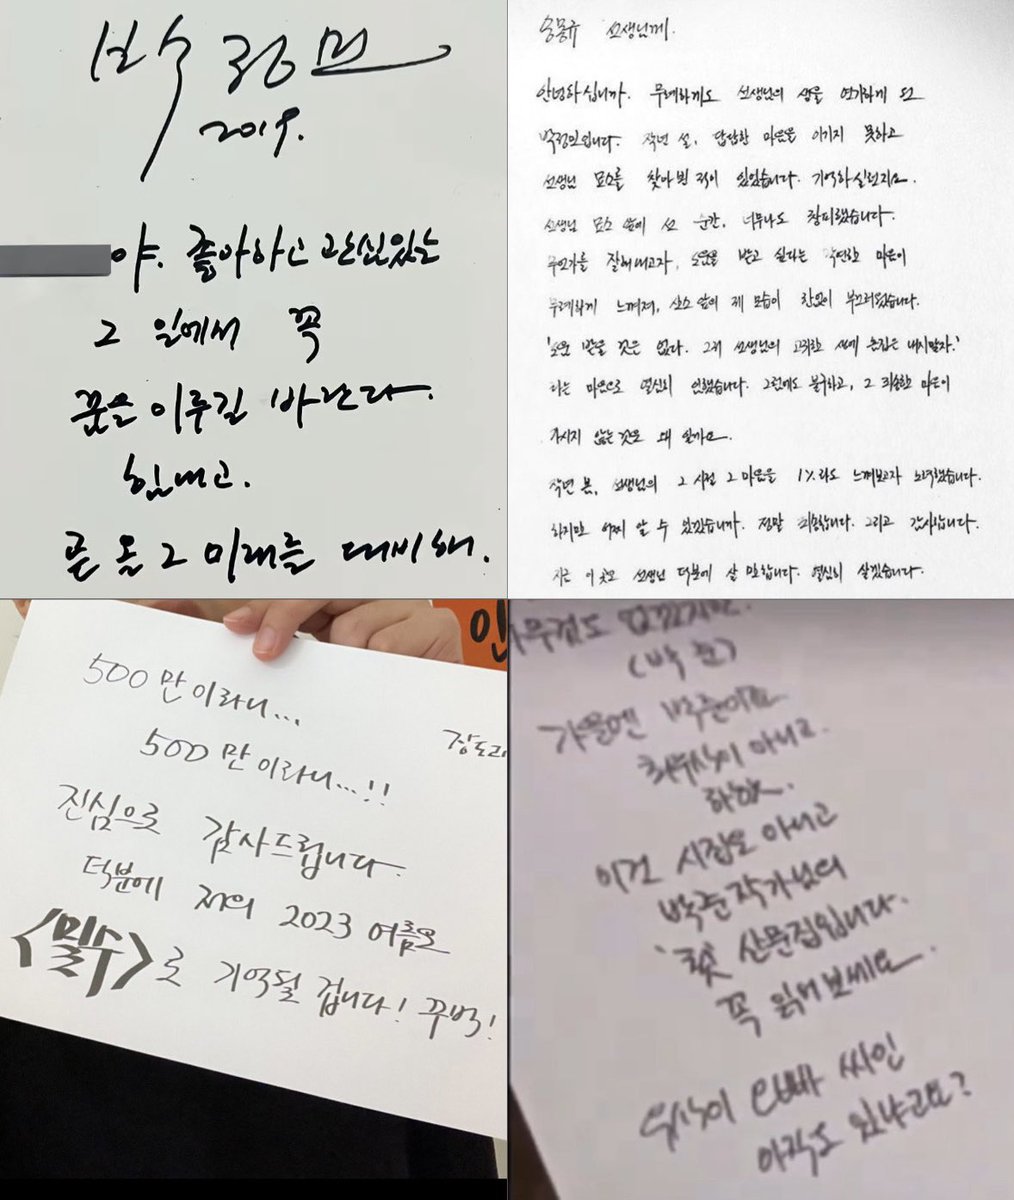 박정민
2019.
야. 좋아하고 관심있는
그 일에서 꼭
꿈을 이루길 바란다.
힘내고.
곧 올 그 미래를 대비해.
송몽규 선생님께.
안녕하십니까. 무례하게도 선생님의 생을 연기하게 된
박정민입니다. 작년 설, 답답한 마음을 이기지 못하고
선생님 묘소를 찾아뵌 적이 있었습니다. 기억하실런지요.
선생님 묘소 앞에 선 순간, 너무나도 창피했습니다.
무언가를 잘해내고자, 도움을 받고 싶다는 막연한 마음이
무례하게 느껴져, 산소 앞의 제 모습이 한없이 부끄러웠습니다.
'도움 받을 것은 없다. 그저 선생님의 고귀한 생에 흠집은 내지말자.'
라는 마음으로 열심히 임했습니다. 그럼에도 불구하고, 그 죄송한 마음이
가시지 않는 것은 왜 일까요.
작년 봄, 선생님의 그 시절 그 마음을 1%라도 느껴보고자 노력했습니다.
하지만 어찌 알 수 있겠습니까. 정말 죄송합니다. 그리고 감사합니다.
지금 이 곳은 선생님 덕분에 살 만합니다. 열심히 살겠습니다.
인
500만이라니...
500만이라니...!!
장도리
진심으로 감사드립니다.
덕분에 저의 2023 여름은
<밀수>로 기억될 겁니다! 꾸벅!
아무것도 없겠지만.
(박준)
가을엔 박준이죠.
최우식이 아니고.
하하.
이건 시집은 아니고
박준작가님의
'첫' 산문집입니다.
꼭 읽어보세요.
우식이 오빠 싸인
아직도 있냐고요?